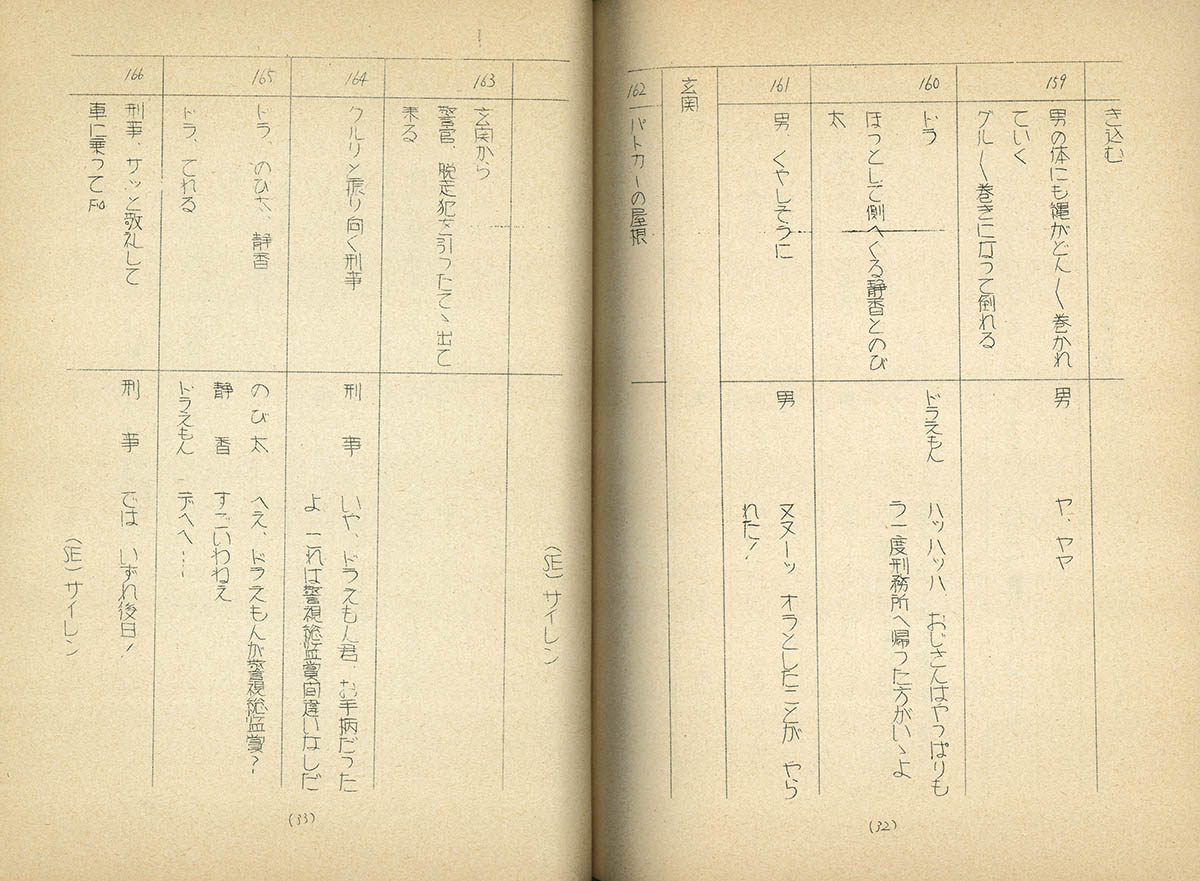 き込む
159
男の体にも縄がどん〱巻かれ
ていく
グル〱巻きになって倒れる
男
ヤ、ヤヤ
160
ドラ
ほっとして側へくる静香とのび
太
ドラえもん
ハッハッハ、おじさんはやっぱりも
う一度刑務所へ帰った方がいゝよ
161
男、くやしそうに
男
ヌヌーッ オラとしたことが やら
れた!
玄関
162
パトカーの屋根
(32)
(SE) サイレン
163
玄関から
警官、脱走犯を引ったてゝ出て
来る
164
クルリと振り向く刑事
刑事
いや、ドラえもん君、お手柄だった
よ これは警視総監賞間違いなしだ
165
ドラ、のび太、静香
ドラ、てれる
のび太
へえ、ドラえもんが警視総監賞?
静香
すごいわねえ
ドラえもん
デヘヘ…
166
刑事、サッと敬礼して
車に乗って FO
刑事
では いずれ後日!
(SE) サイレン
(33)